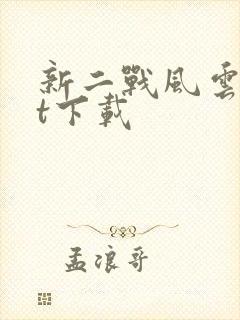 新二戰風雲
t下載
孟浪哥